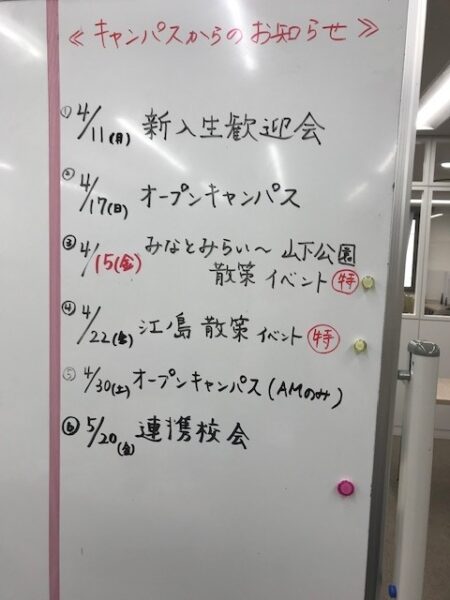 ≪キャンパスからのお知らせ≫
① 4/11(月) 新入生歓迎会
② 4/17(日) オープンキャンパス
③ 4/15(金) みなとみらい～山下公園
散策イベント 特
④ 4/22(金) 江ノ島散策イベント 特
⑤ 4/30(土) オープンキャンパス(AMのみ)
⑥ 5/20(金) 連携校会